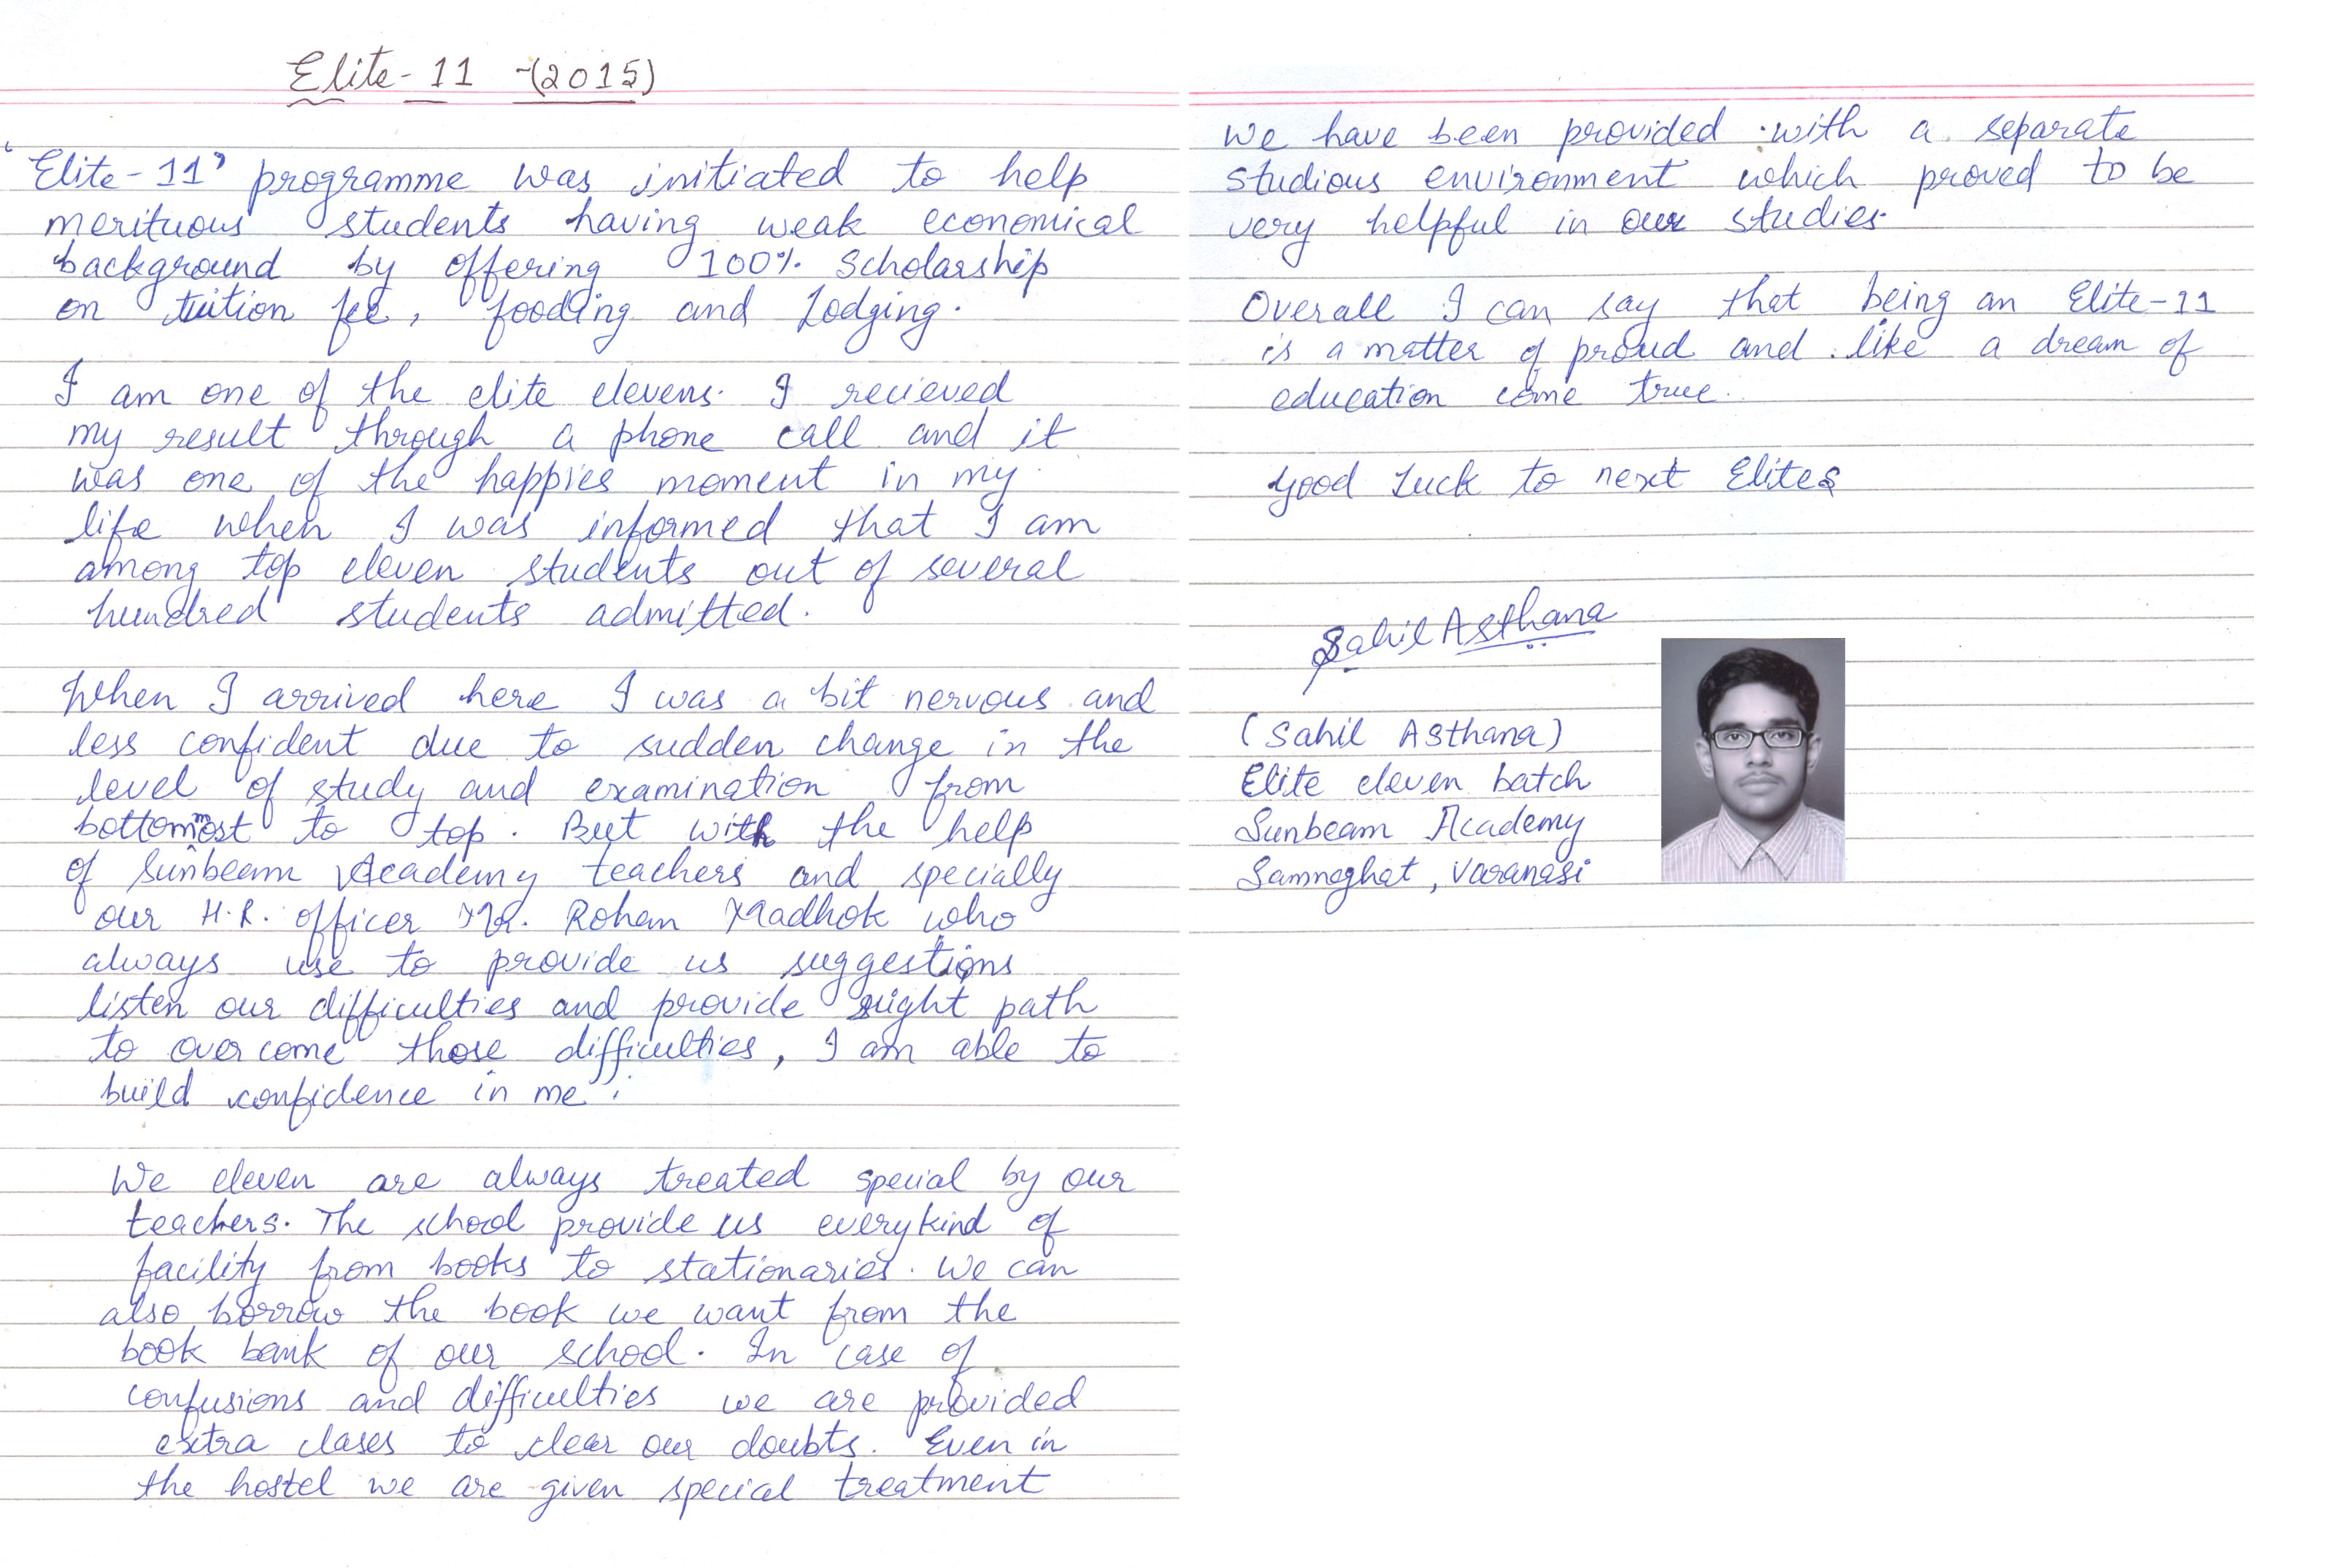 Elite-11 -(2015)
"Elite-11" programme was initiated to help
merituous students having weak economical
background by offering 100% Scholarship
on tuition fee, fooding and Lodging.
I am one of the elite elevens. I recieved
my result through a phone call and it
was one of the happies moment in my
life when I was informed that I am
among top eleven students out of several
hundred students admitted.
When I arrived here I was a bit nervous and
less confident due to sudden change in the
level of study and examination from
bottommost to top. But with the help
of Sunbeam Academy teachers and specially
our H.R. officer Mr. Rohan Madhok who
always use to provide us suggestions
listen our difficulties and provide right path
to overcome those difficulties, I am able to
build confidence in me.
We eleven are always treated special by our
teachers. The school provide us everykind of
facility from books to stationaries. We can
also borrow the book we want from the
book bank of our school. In case of
confusions and difficulties we are provided
extra clases to clear our doubts. Even in
the hostel we are given special treatment
we have been provided with a separate
studious environment which proved to be
very helpful in our studies.
Overall I can say that being an Elite-11
is a matter of proud and like a dream of
education come true.
Good Luck to next Elites
Sahil Asthana
(Sahil Asthana)
Elite eleven batch
Sunbeam Academy
Samneghat, Varanasi